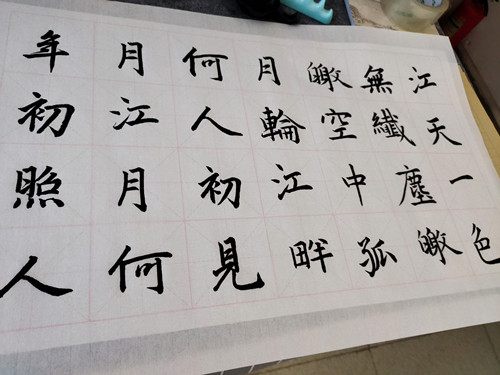 江天一色
無纖塵皦
皦空中孤
月輪江畔
何人初見
月江月何
年初照人